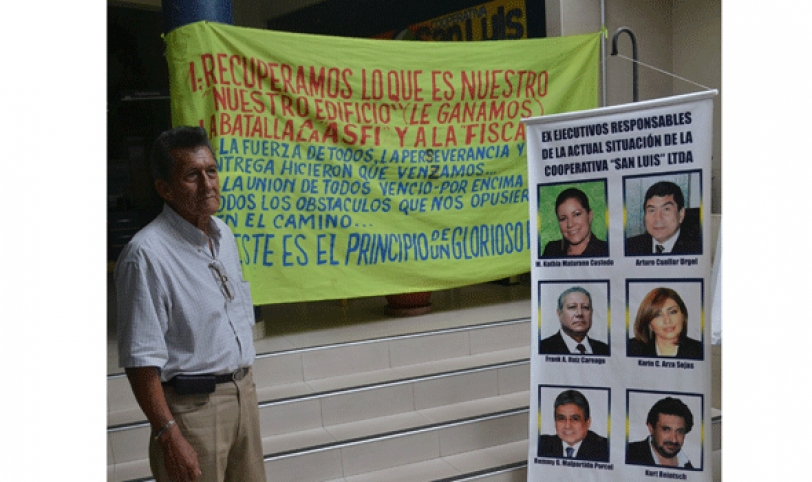 COOPERATIVA
San Luis
1: RECUPERAMOS LO QUE ES NUESTRO
"NUESTRO EDIFICIO" (LE GANAMOS)
LA BATALLA A "ASFI" Y A LA FISCA
LA FUERZA DE TODOS, LA PERSEVERANCIA Y
ENTREGA HICIERON QUE VENZAMOS...
LA UNION DE TODOS VENCIO-POR ENCIMA
TODOS LOS OBSTACULOS QUE NOS OPUSIER
EN EL CAMINO...
ESTE ES EL PRINCIPIO DE UN GLORIOSO
EX EJECUTIVOS RESPONSABLES
DE LA ACTUAL SITUACIÓN DE LA
COOPERATIVA "SAN LUIS" LTDA
M. Kathia Maturano Custedo
Arturo Cuellar Urgel
Frank A. Careaga
Karin C. Arza Sejas
Remmy G. Malpartida Porcel
Karl Balatsch